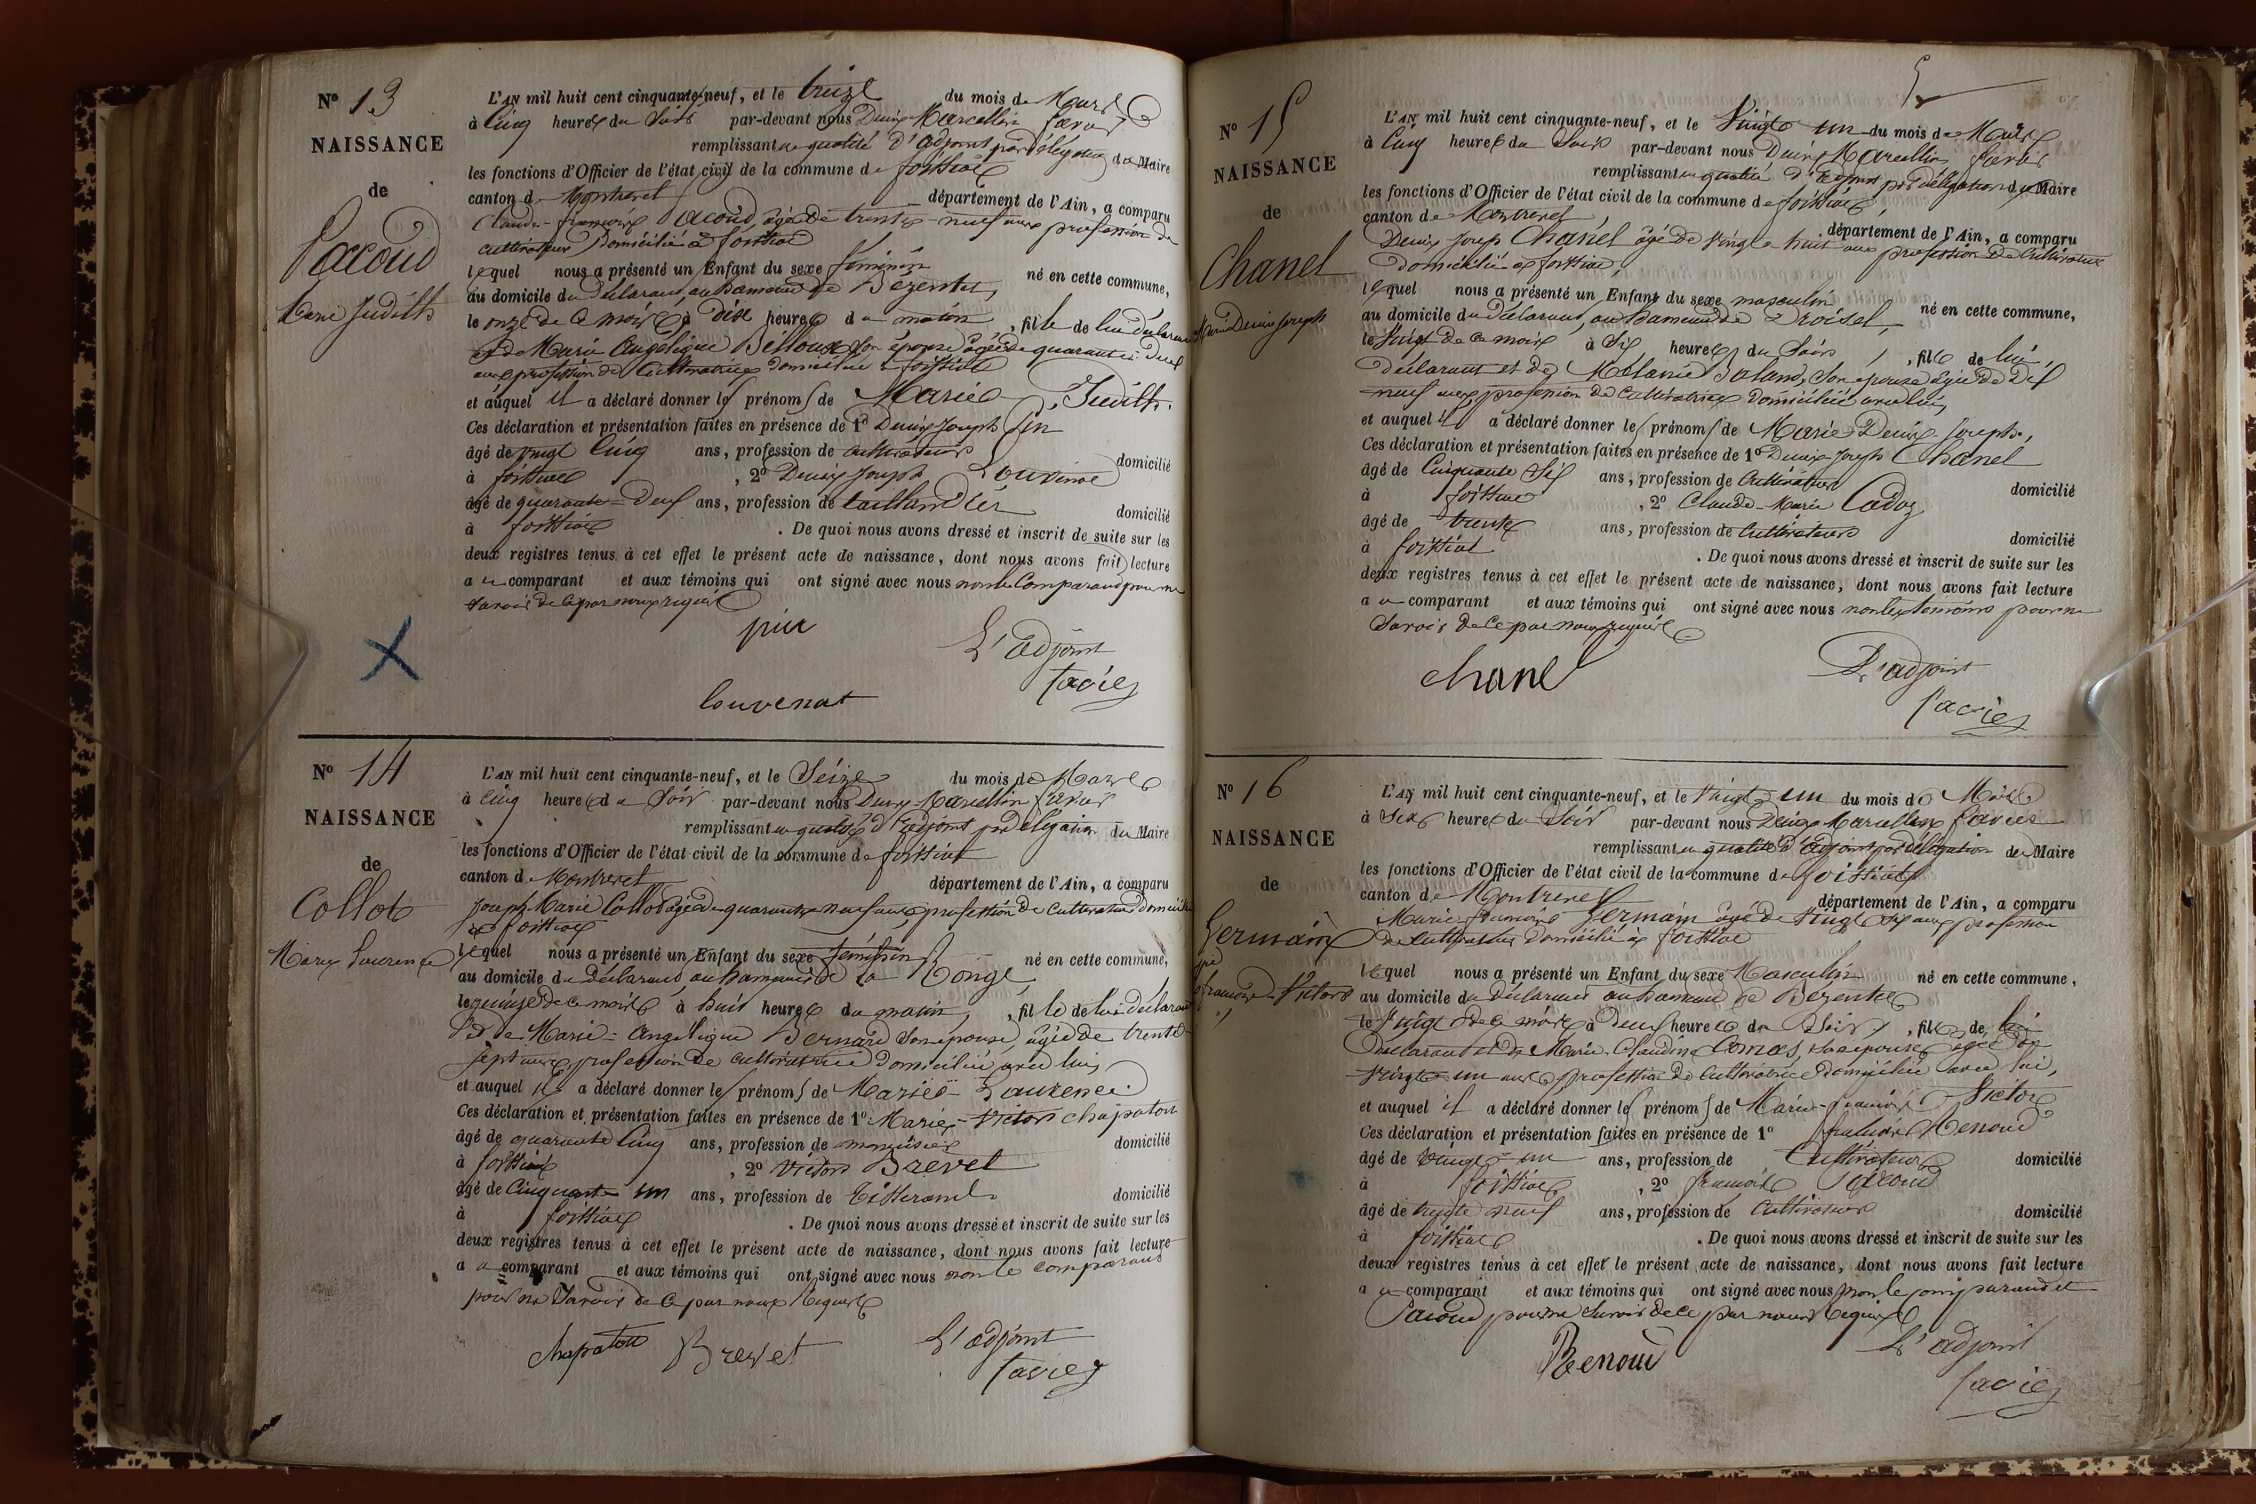 N° 13
NAISSANCE
de
Pacoud
Marie Judith
L'AN mil huit cent cinquante-neuf, et le treize du mois de Mars
à Cinq heures du Soir par-devant nous Denis Marcellin favier
remplissant en qualité d'adjoint par délégation du Maire
les fonctions d'Officier de l'état civil de la commune de foissiat
canton de Montrevel département de l'Ain, a comparu
Claude françois Pacoud, âgé de trente-neuf ans profession de
cultivateur domicilié à foissiat
lequel nous a présenté un Enfant du sexe féminin né en cette commune,
au domicile du déclarant, au hameau de Bezentet,
le onze de ce mois à dix heures du matin, fille de lui déclarant
et de Marie Angélique Belloux son épouse âgée de quarante deux
ans profession de Cultivatrice domiciliée à foissiat
et auquel il a déclaré donner les prénoms de Marie Judith.
Ces déclaration et présentation faites en présence de 1° Denis Joseph Pin
âgé de vingt cinq ans, profession de cultivateur domicilié
à foissiat, 2° Denis Joseph Louvenat
âgé de quarante-deux ans, profession de taillandier domicilié
à foissiat. De quoi nous avons dressé et inscrit de suite sur les
deux registres tenus à cet effet le présent acte de naissance, dont nous avons fait lecture
a u comparant et aux témoins qui ont signé avec nous non le Comparant pour ne
savoir de ce par nous requis
pin L'adjoint
louvenat favier
N° 14
NAISSANCE
de
Collot
Marie Laurence
L'AN mil huit cent cinquante-neuf, et le Seize du mois de Mars
à cinq heures du Soir par-devant nous Denis Marcellin favier
remplissant en qualité d'adjoint par délégation du Maire
les fonctions d'Officier de l'état civil de la commune de foissiat
canton de Montrevel département de l'Ain, a comparu
Joseph Marie Collot âgé de quarante neuf ans, profession de cultivateur domicilié
à foissiat
lequel nous a présenté un Enfant du sexe féminin né en cette commune,
au domicile du déclarant au hameau de la Ronge,
le quinze de ce mois à huit heures du matin, fille de lui déclarant
et de Marie-Angélique Bernard son épouse, âgée de trente
sept ans, profession de cultivatrice domiciliée avec lui,
et auquel il a déclaré donner les prénoms de Marie Laurence.
Ces déclaration et présentation faites en présence de 1° Marie-Victor chapaton
âgé de quarante cinq ans, profession de menuisier domicilié
à foissiat, 2° Victor Brevet
âgé de Cinquante un ans, profession de Tisserand domicilié
à foissiat. De quoi nous avons dressé et inscrit de suite sur les
deux registres tenus à cet effet le présent acte de naissance, dont nous avons fait lecture
a u comparant et aux témoins qui ont signé avec nous non le comparant
pour ne Savoir de Ce par nous Requis
chapaton Brevet L'adjoint
favier
5
N° 15
NAISSANCE
de
Chanel
Marie Denis Joseph
L'AN mil huit cent cinquante-neuf, et le Vingt un du mois de Mars
à Cinq heures du Soir par-devant nous Denis Marcellin favier
remplissant en qualité d'adjoint par délégation du Maire
les fonctions d'Officier de l'état civil de la commune de foissiat,
canton de Montrevel, département de l'Ain, a comparu
Denis Joseph Chanel âgé de Vingt-huit ans profession de Cultivateur
domicilié à foissiat,
lequel nous a présenté un Enfant du sexe masculin né en cette commune,
au domicile du déclarant, au hameau de Droisel,
le Vingt de ce mois à Six heures du Soir, fils de lui
déclarant et de Mélanie Palland, son épouse âgée de dix
neuf ans, profession de Cultivatrice domiciliée avec lui,
et auquel il a déclaré donner les prénoms de Marie Denis Joseph.,
Ces déclaration et présentation faites en présence de 1° Denis-Joseph Chanel
âgé de Cinquante Six ans, profession de Cultivateur domicilié
à foissiat, 2° Claude-Marie Cadoz
âgé de trente ans, profession de Cultivateur domicilié
à foissiat. De quoi nous avons dressé et inscrit de suite sur les
deux registres tenus à cet effet le présent acte de naissance, dont nous avons fait lecture
a u comparant et aux témoins qui ont signé avec nous non les témoins pour ne
Savoir de Ce par nous requis
chanel L'adjoint
favier
N° 16
NAISSANCE
de
Germain
françois Victor
L'AN mil huit cent cinquante-neuf, et le Vingt un du mois de Mars
à Six heures du Soir par-devant nous Denis Marcellin favier
remplissant en qualité d'adjoint par délégation du Maire
les fonctions d'Officier de l'état civil de la commune de foissiat
canton de Montrevel département de l'Ain, a comparu
Marie-françois Germain âgé de Vingt six ans profession
de Cultivateur domicilié à foissiat
lequel nous a présenté un Enfant du sexe Masculin né en cette commune,
au domicile du déclarant au hameau de Bezentet
le Vingt de ce mois à deux heures du Soir, fils de lui
déclarant et de Marie-Claudine Comas, son épouse âgée de
vingt-un ans profession de Cultivatrice domiciliée avec lui,
et auquel il a déclaré donner les prénoms de Marie-françois Victor
Ces déclaration et présentation faites en présence de 1° Renoud
âgé de vingt-un ans, profession de Cultivateur domicilié
à foissiat, 2° françois Pacoud
âgé de trente neuf ans, profession de Cultivateur domicilié
à foissiat. De quoi nous avons dressé et inscrit de suite sur les
deux registres tenus à cet effet le présent acte de naissance, dont nous avons fait lecture
a u comparant et aux témoins qui ont signé avec nous non le comparant et
Pacoud pour ne Savoir de Ce par nous Requis
Renoud L'adjoint
favier